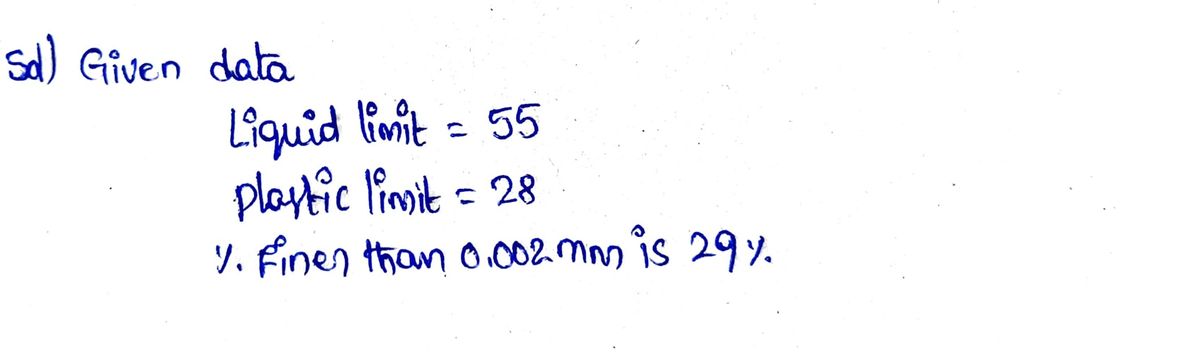 Sol) Given data
Liquid limit = 55
plastic limit = 28
%. Finer than 0.002 mm is 29%.